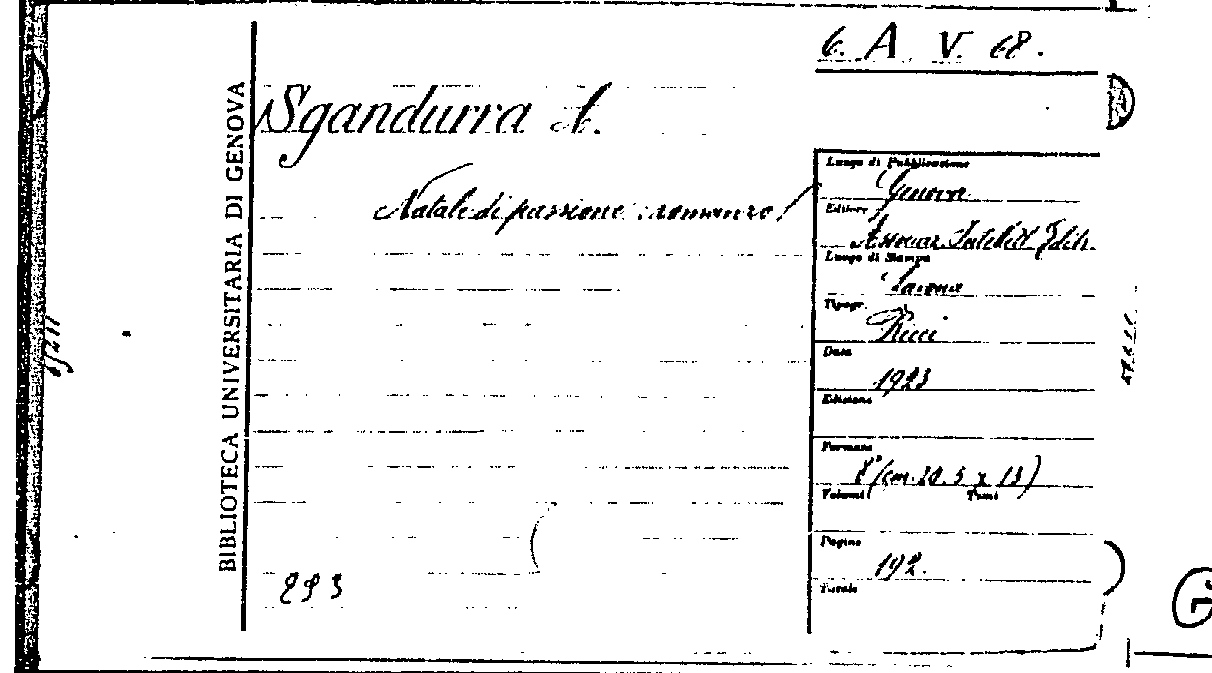 6. A V. 68.
BIBLIOTECA UNIVERSITARIA DI GENOVA
Sgandurra A.
Natale di passione : romanzo /
Luogo di Pubblicazione
Genova
Editore
Associaz. Edit.
Luogo di Stampa
Savona
Tipogr.
Ricci
Data
1923
Edizione
Formato
8° (cm. 20.5 x 13)
Volumi Tomi
Pagine
192.
Tavole
293
G